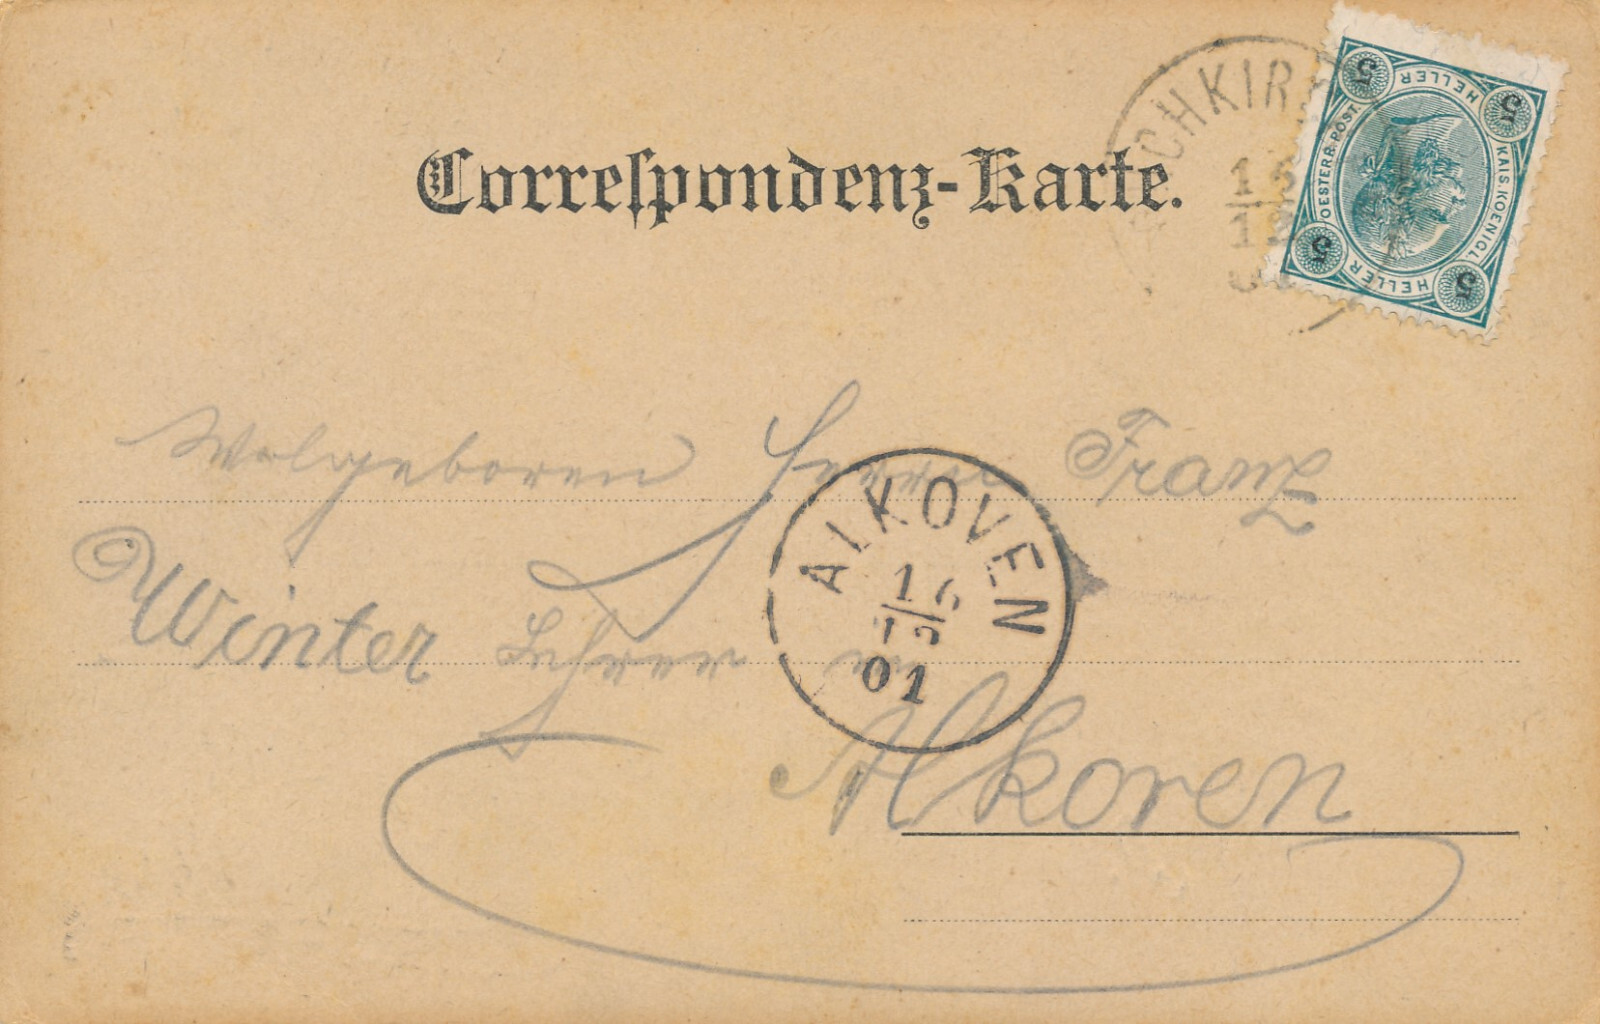 Correspondenz-Karte.
CHKIR
16
12
KAIS. KOENIGL.
OESTERR. POST
HELLER
HELLER
5
5
5
5
Wolgeboren Herrn Franz
Winter Lehrer in
Alkoven
ALKOVEN
16
01